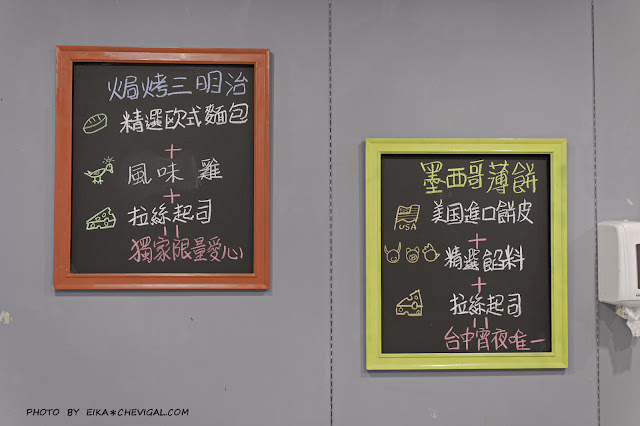 焗烤三明治
精選欧式麵包
+
風味雞
+
拉絲起司
=
獨家限量愛心
墨西哥薄餅
美国進口餅皮
USA
+
精選餡料
+
拉絲起司
=
台中宵夜唯一
PHOTO BY EIKA*CHEVIGAL.COM